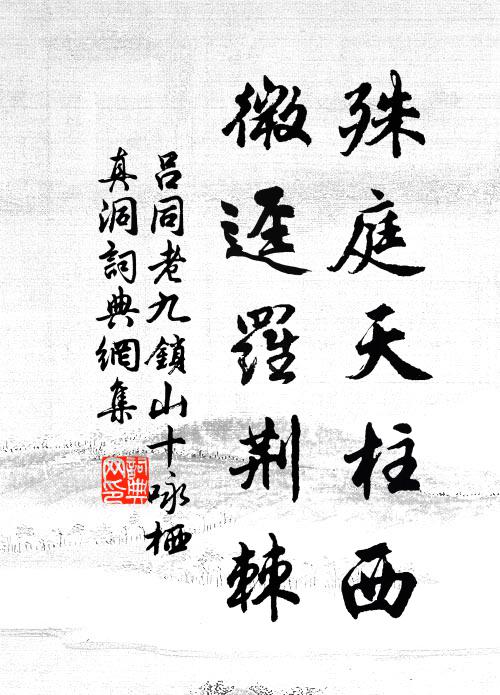 殊庭天柱西
微逕羅荊棘
呂同老九鎖山十咏栖
真洞詞典網集
詞典网印